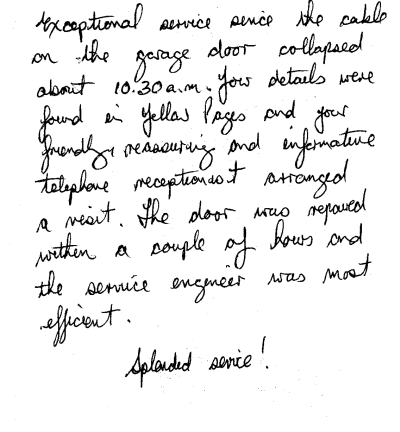 Exceptional service since the cable
on the garage door collapsed
about 10.30 a.m. Your details were
found in Yellow Pages and your
friendly, reassuring and informative
telephone receptionist arranged
a visit. The door was repaired
within a couple of hours and
the service engineer was most
efficient.
Splendid service!